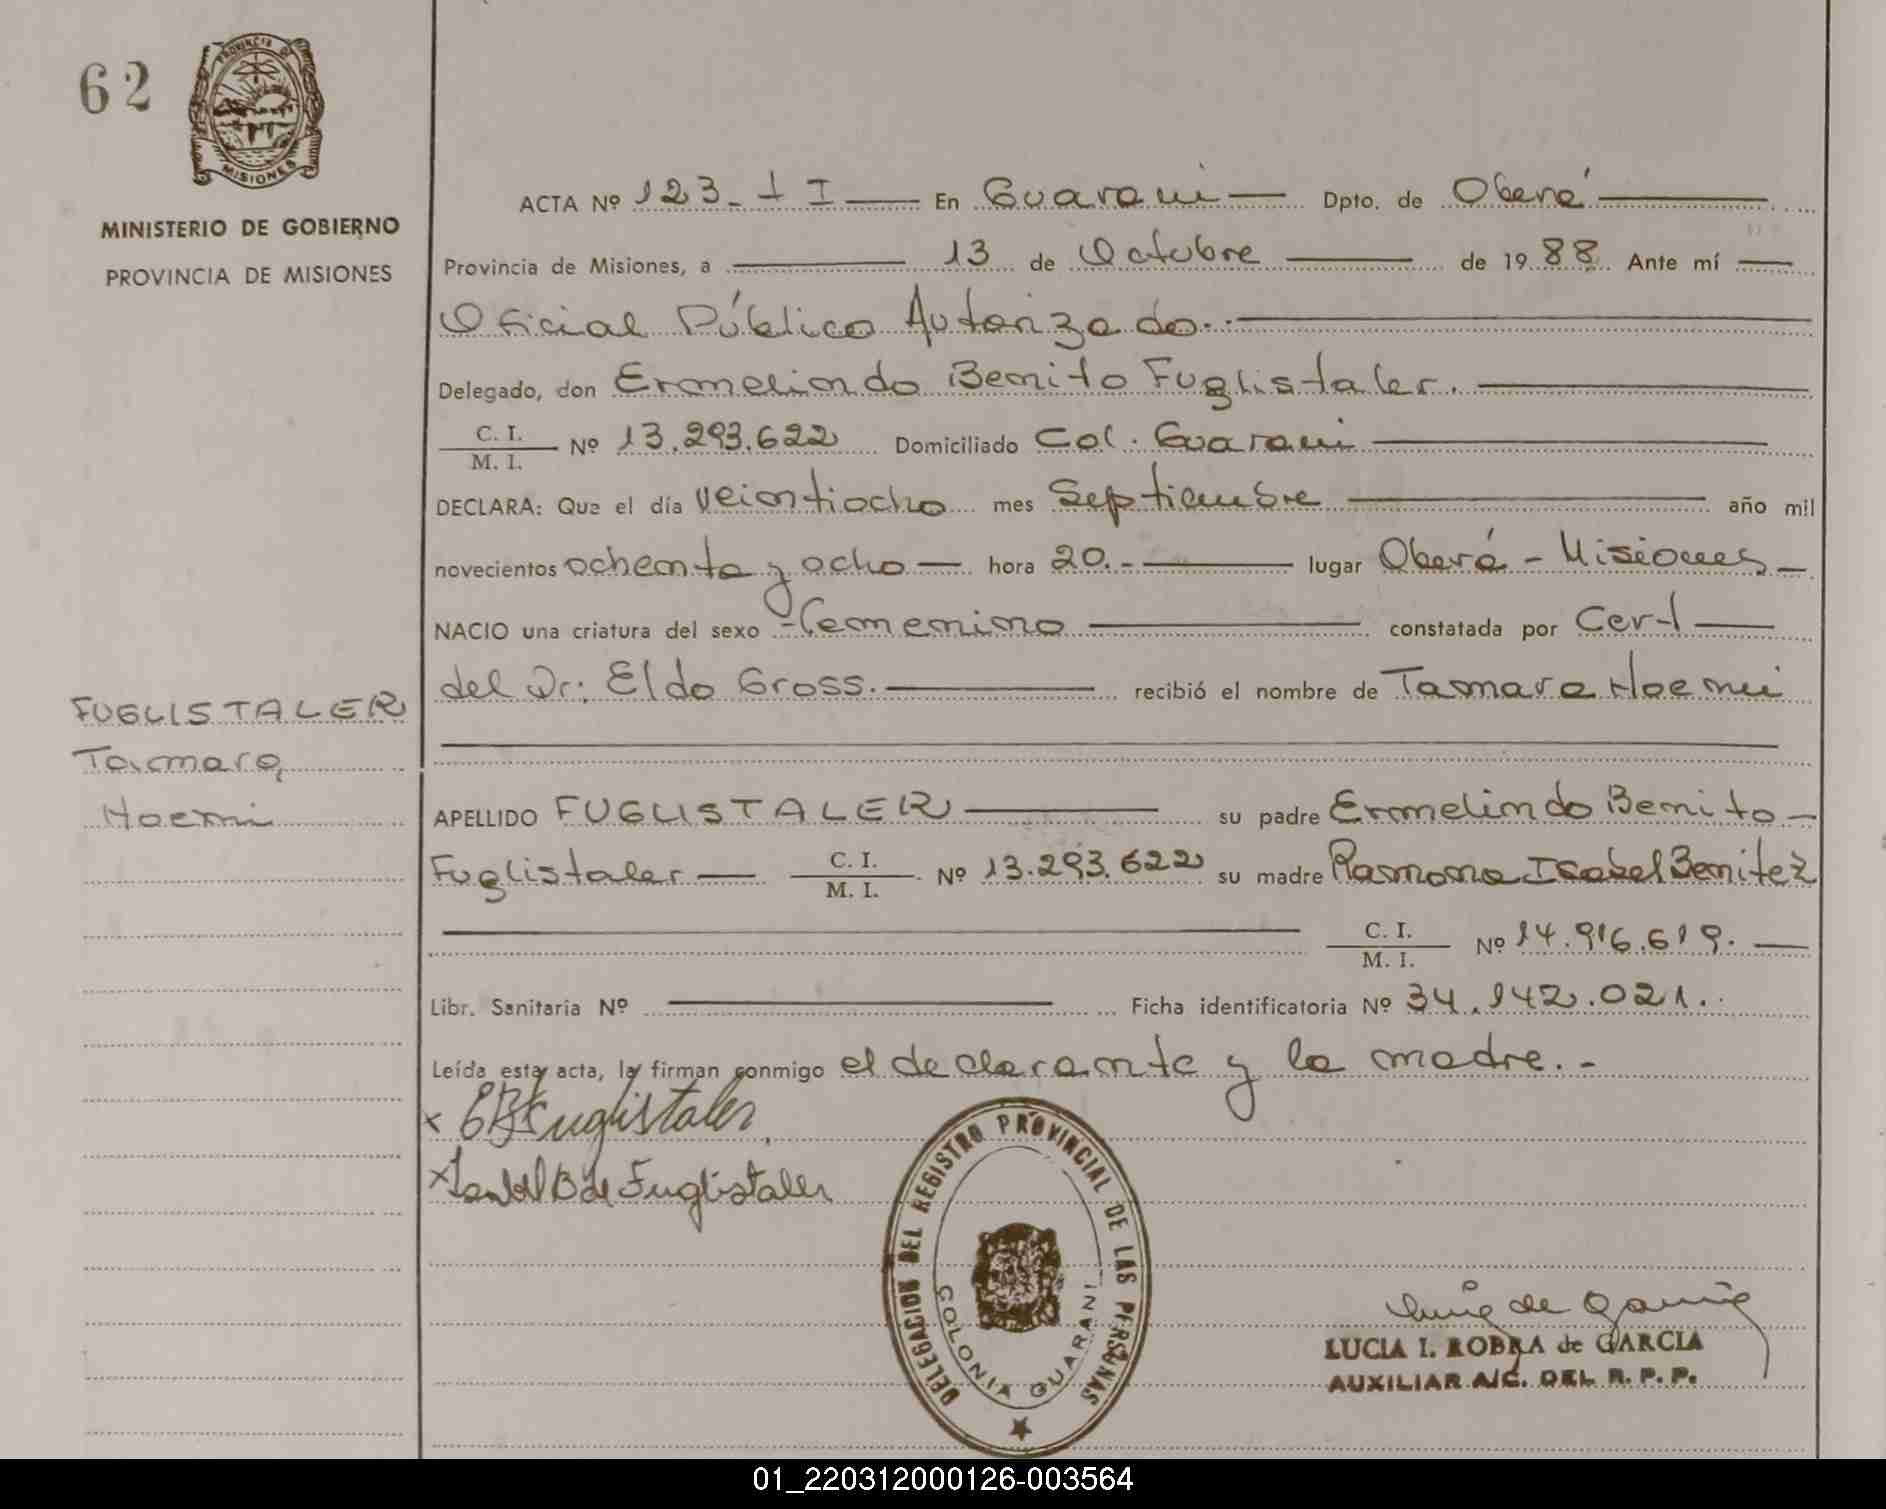 62
PROVINCIA DE
MISIONES
MINISTERIO DE GOBIERNO
PROVINCIA DE MISIONES
FUGLISTALER
Tamara
Noemi
ACTA Nº 123 - I I En Guarani Dpto. de Oberá
Provincia de Misiones, a 13 de Octubre de 19 88 Ante mí
Oficial Público Autorizado.
Delegado, don Ermelindo Benito Fuglistaler.
C. I. / M. I. Nº 13.293.622 Domiciliado Col. Guarani
DECLARA: Que el día veintiocho mes Septiembre año mil
novecientos ochenta y ocho hora 20.- lugar Oberá - Misiones
NACIO una criatura del sexo femenino constatada por Cert
del Dr: Eldo Gross. recibió el nombre de Tamara Noemi
APELLIDO FUGLISTALER su padre Ermelindo Benito
Fuglistaler C. I. / M. I. Nº 13.293.622 su madre Ramona Isabel Benitez
C. I. / M. I. Nº 14.916.619.
Libr. Sanitaria Nº Ficha identificatoria Nº 34.142.021.
Leída esta acta, la firman conmigo el declarante y la madre.-
x EBFuglistaler
x Isabel B de Fuglistaler
DELEGACION DEL REGISTRO PROVINCIAL DE LAS PERSONAS
COLONIA GUARANI
LUCIA I. ROBRA de GARCIA
AUXILIAR A/C. DEL R. P. P.
01_220312000126-003564